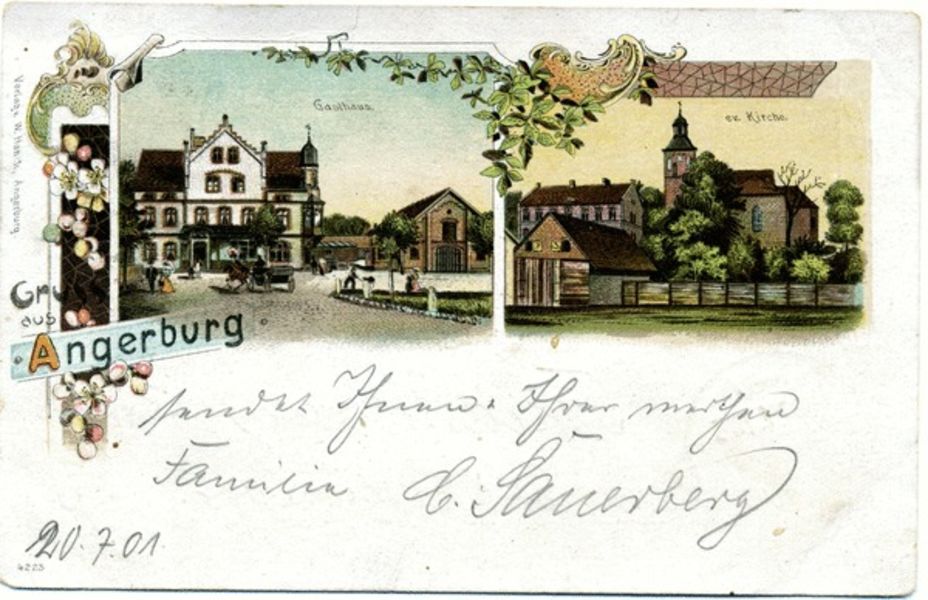 Gruß
aus
Angerburg
Gasthaus.
ev. Kirche.
Verlag v. W. , Angerburg.
sendet Ihnen & Ihrer werthen
Familie C. Sauerberg
20.7.01.
4223